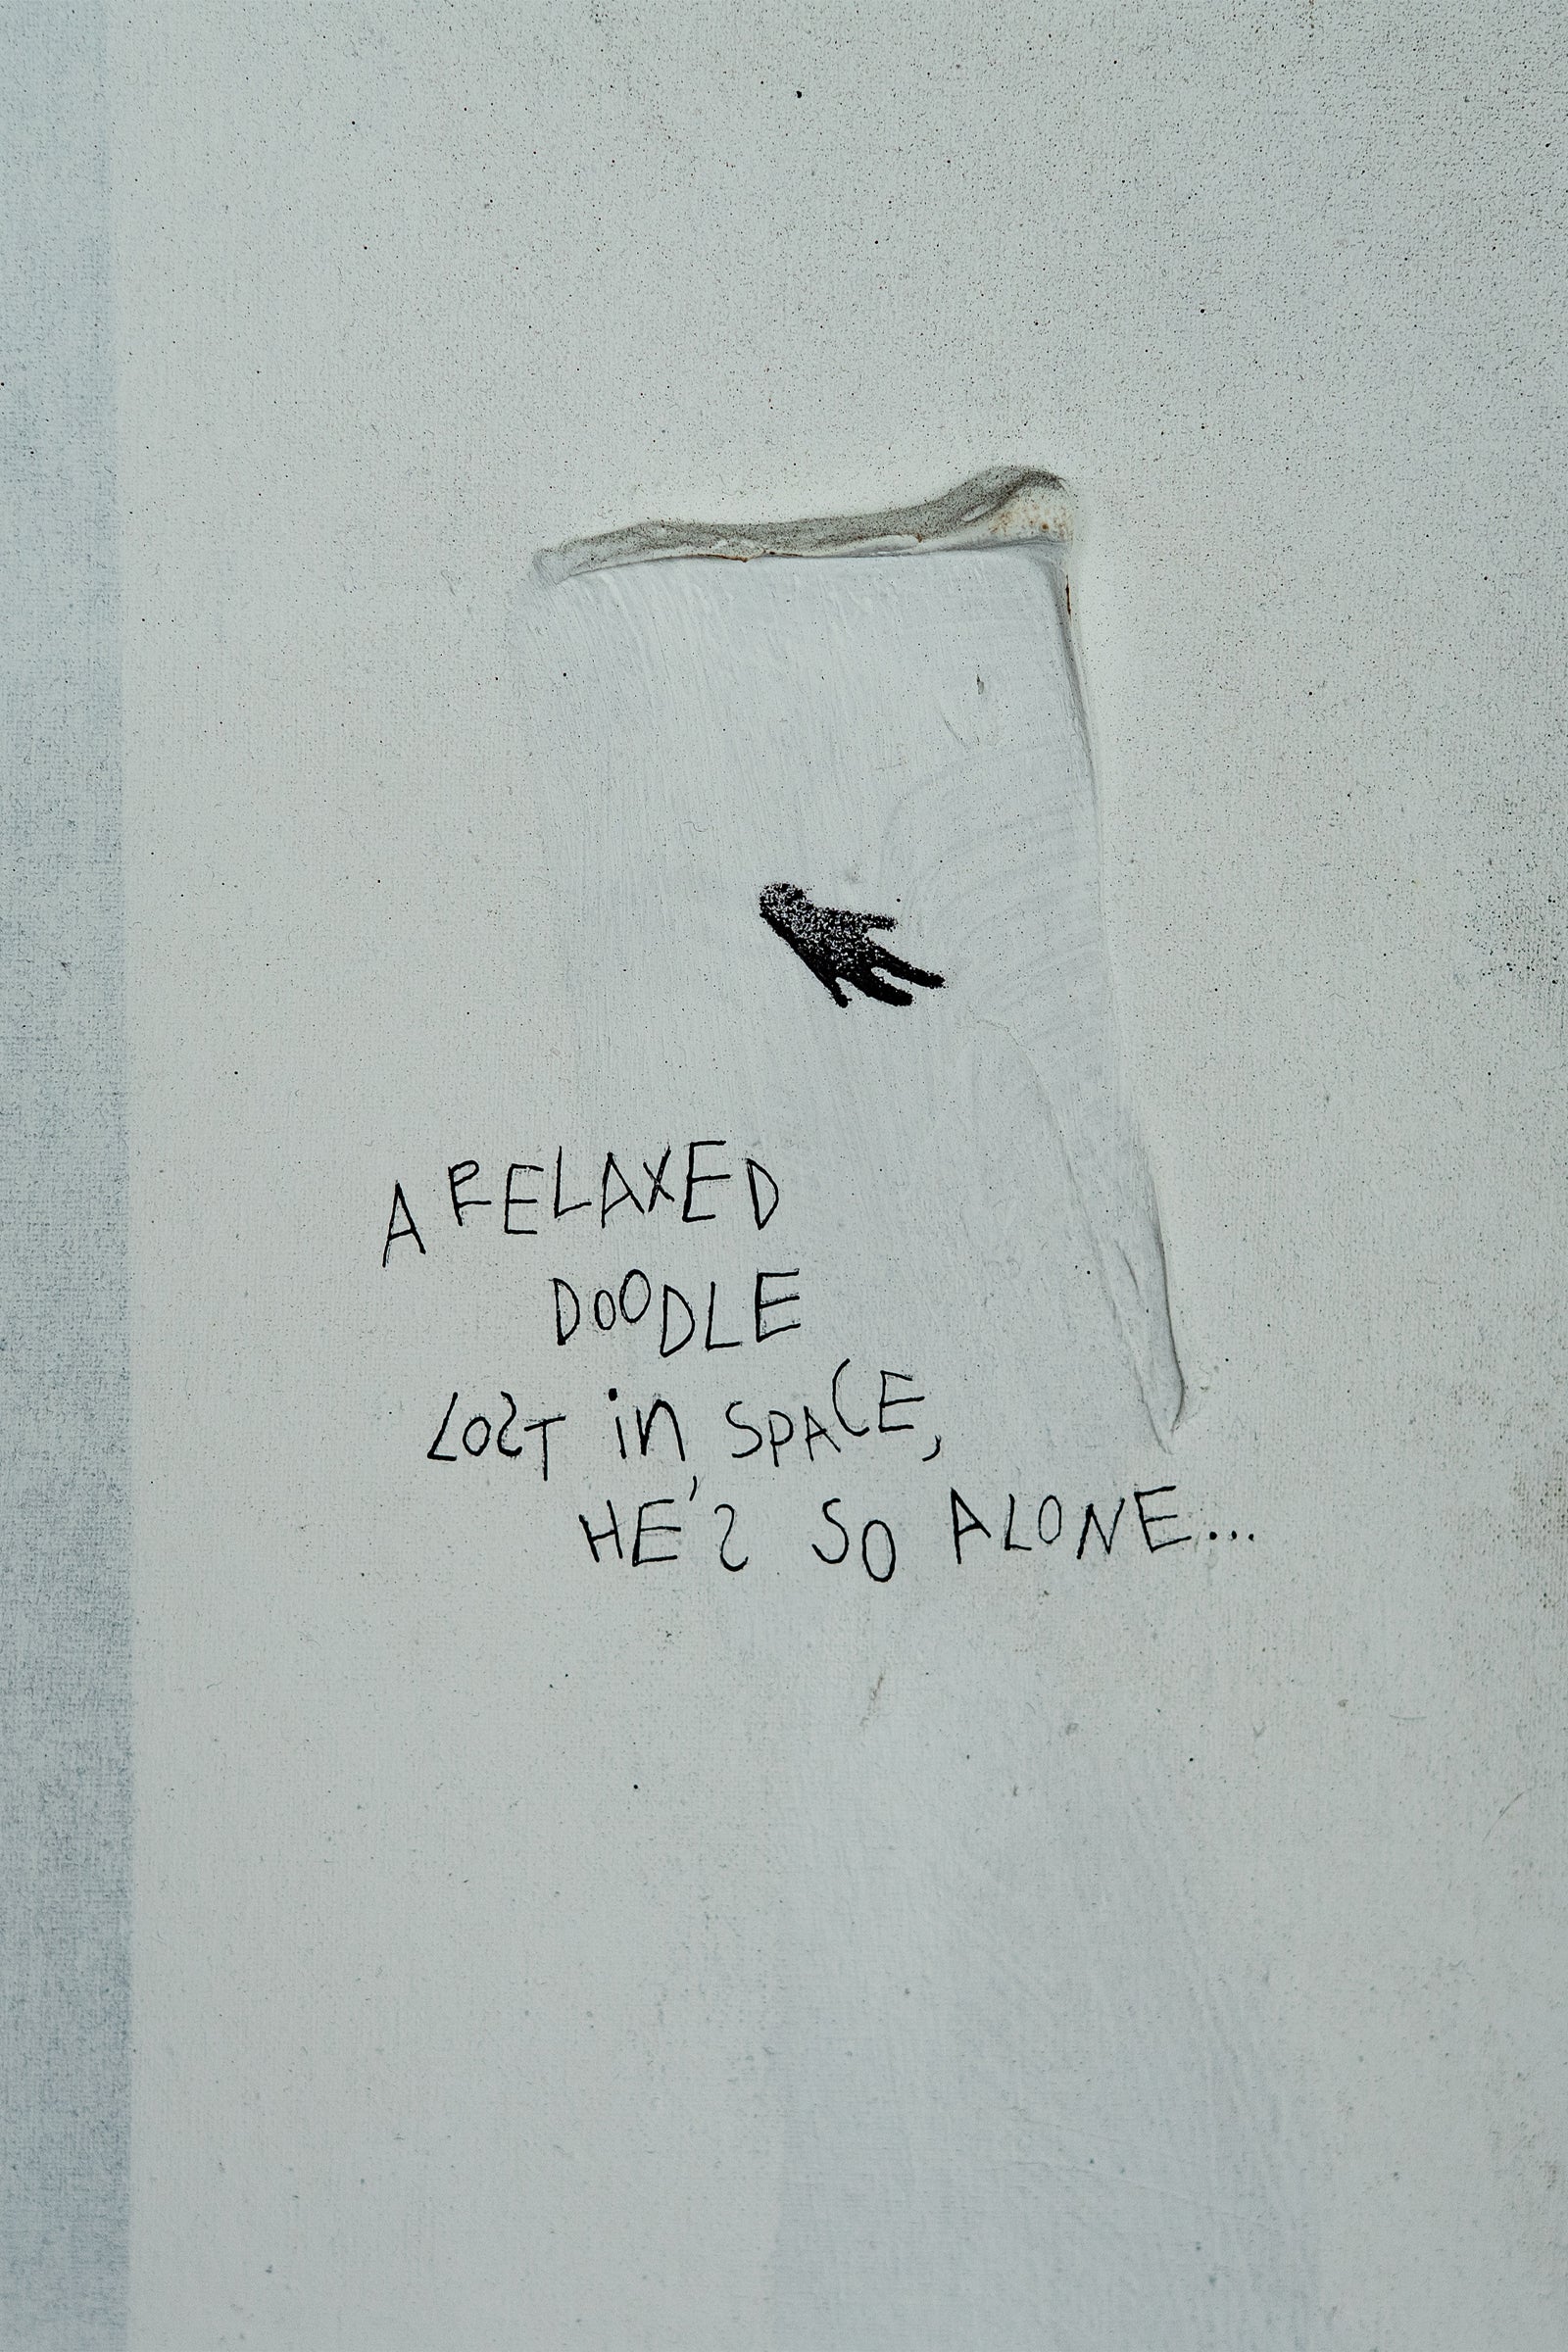 A RELAXED
DOODLE
LOST in SPACE,
HE'S SO ALONE...